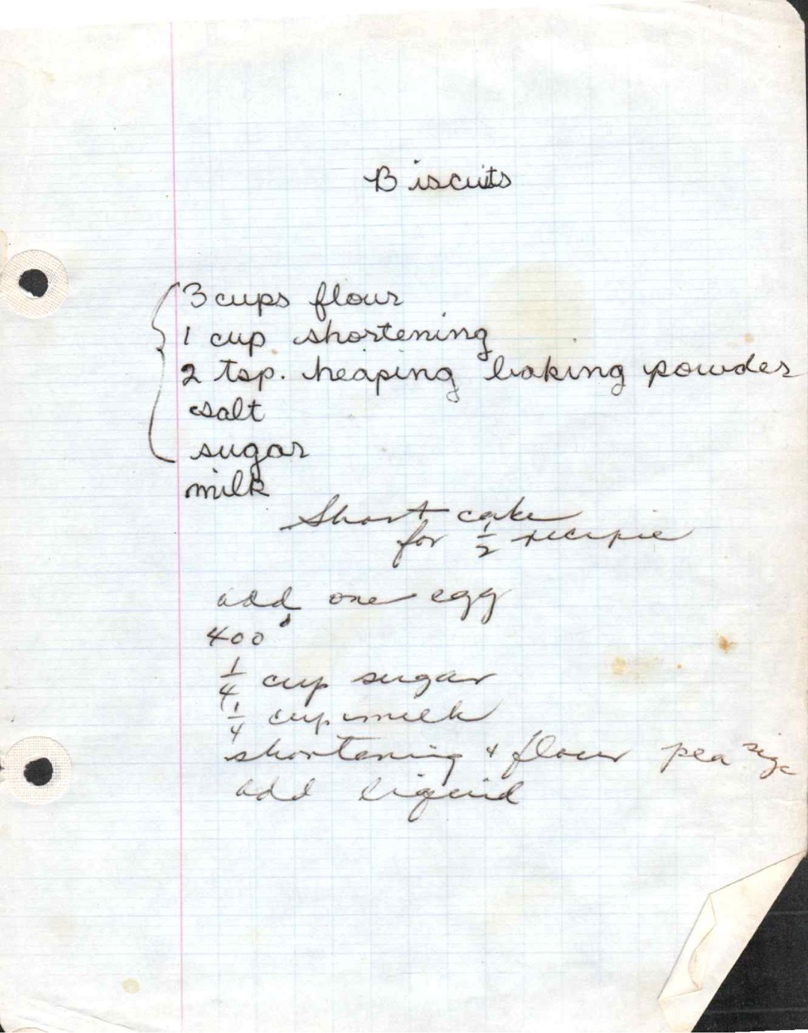 Biscuits
3 cups flour
1 cup shortening
2 tsp. heaping baking powder
salt
sugar
milk
Short cake
for 1/2 recipie
add one egg
400°
1/4 cup sugar
1/4 cup milk
shortening & flour pea size
add liquid